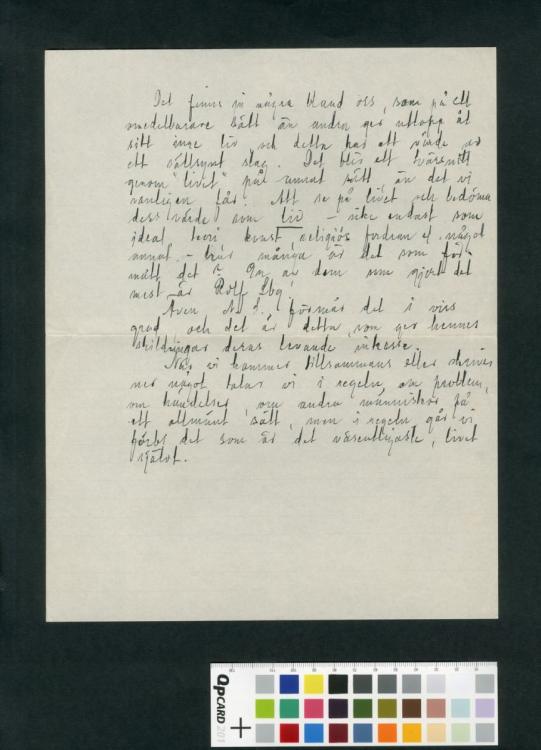 Det finns in några bland oss, som på ett
omedelbarare sätt än andra ger utlopp åt
sitt inre liv och detta har ett värde av
ett sällsynt slag. Det blir ett tvärsnitt
genom "livet" på annat sätt än det vi
vanligen får. Att se på livet och bedöma
dess värde som liv – icke endast som
ideal teori konst, religiös fordran el. något
annat – hur många är det som för-
mått det? En av dem som gjort det
mest är Rolf Lbg.
Även A. L. förmår det i viss
grad, och det är detta, som ger hennes
skildringar deras levande intresse.
När vi kommer tillsammans eller skriver
ner något talar vi i regeln om problem,
om händelser, om andra människor på
ett allmänt sätt, men i regeln går vi
förbi det som är det väsentligaste, livet
självt.
OpCARD 201